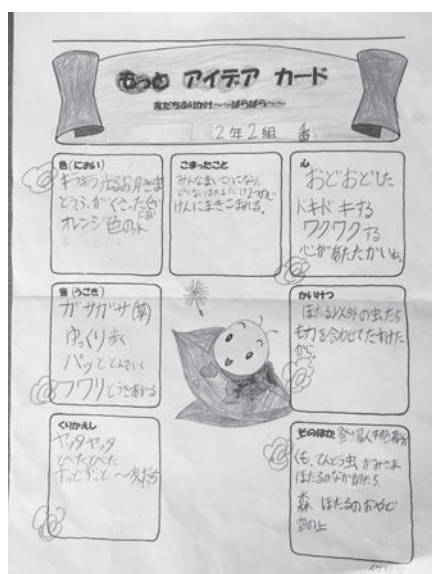 もっと アイデア カード
友だちふりかけ～～ぱらぱら～～
2年2組 番
色(におい)
キラキラ光るお月さま
オレンジ色の
こまったこと
みんなまいごになり、
けんにまきこまれる。
心
おどおどした
ドキドキする
ワクワクする
心があたたかいね。
音(うごき)
ガサガサ(草)
ゆっくり歩く
パッととんでいく
フワリとうきあがる
かいけつ
ほたる以外の虫たち
も力を合わせてたすけた
から。
くりかえし
ヤッタヤッタ
とべたとべた
ずっとずっと 〜友だち
そのほか 登場人物
くも、てんとう虫 かみさま
ほたるのなか間たち
森 ほたるのおやど
雲の上